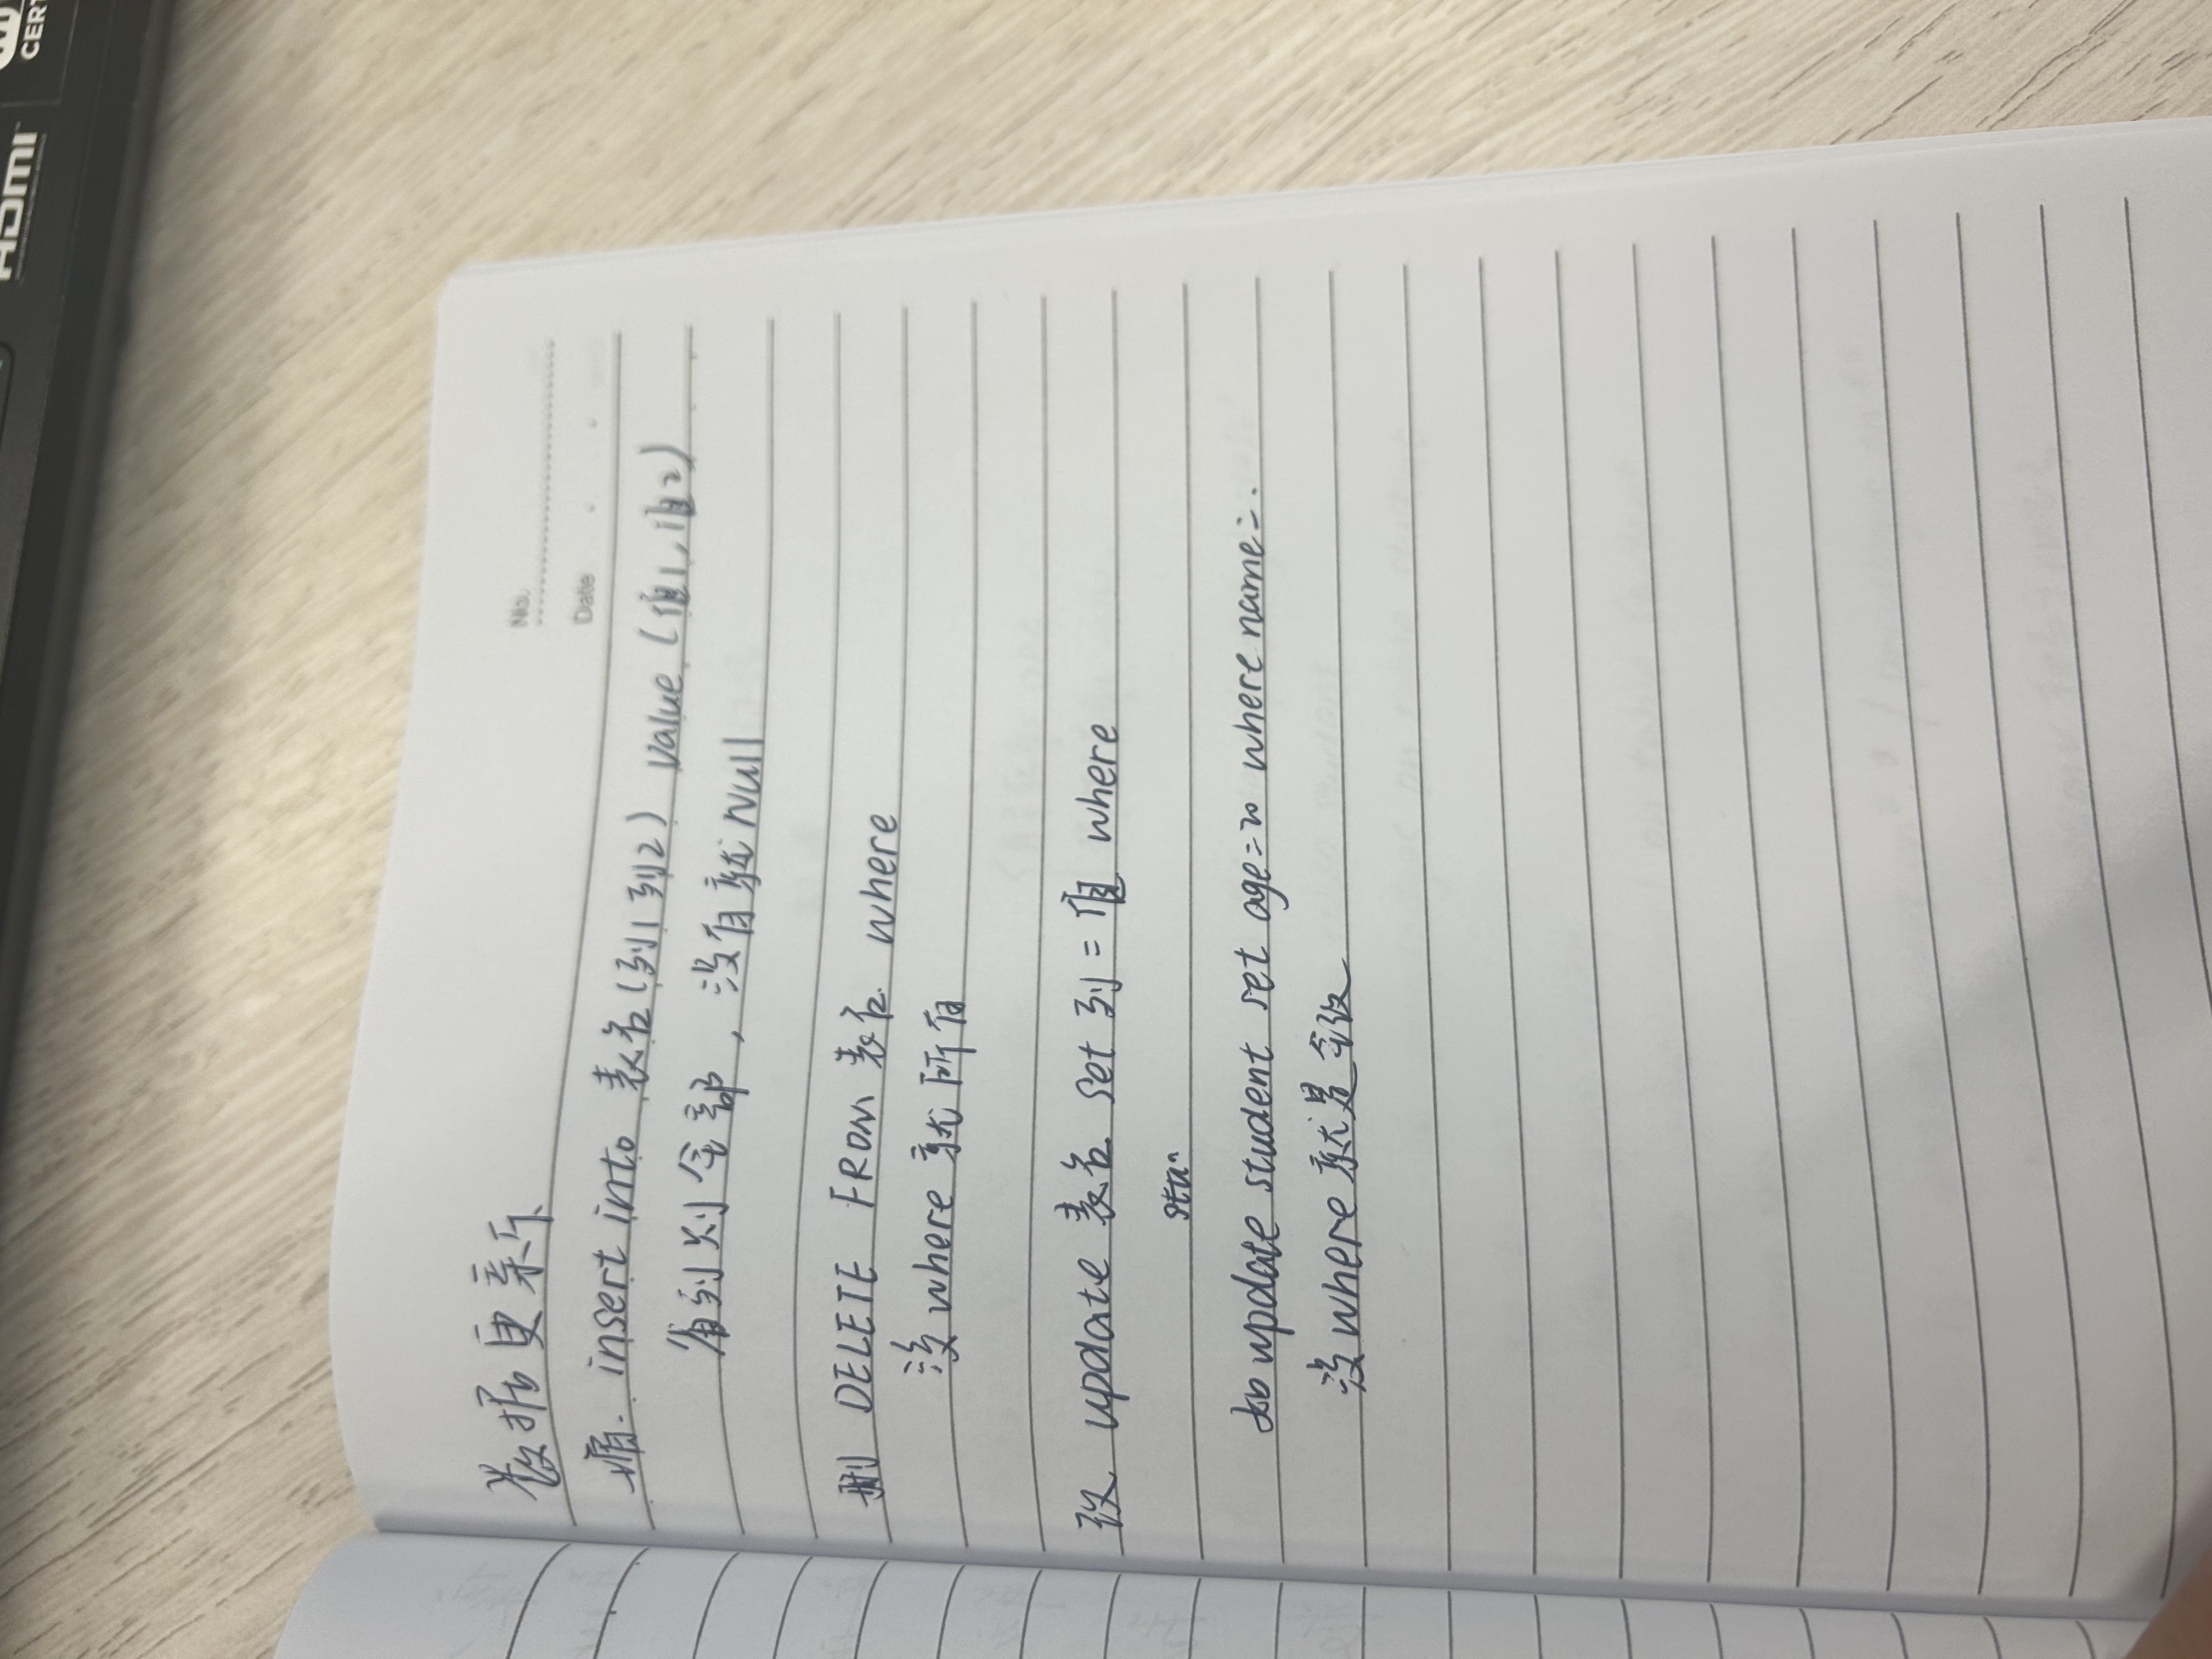 HDMI
CERT
数据更新
No.
Date
增. insert into 表名(列1 列2) value (值1, 值2)
省列则全部, 没有就Null
删 DELETE FROM 表名 where
没where 就所有
改 update 表名 set 列=值 where
stu
如 update student set age=20 where name=.
没where 就是全改